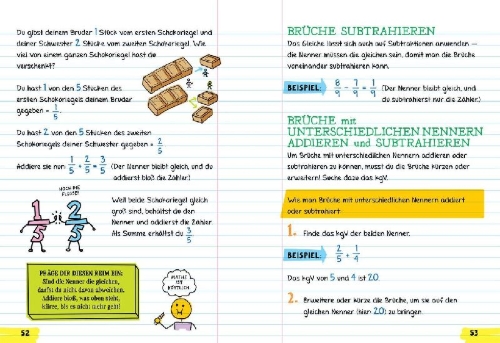 Du gibst deinem Bruder 1 Stück vom ersten Schokoriegel und
deiner Schwester 2 Stücke vom zweiten Schokoriegel. Wie
viel von einem ganzen Schokoriegel hast du
verschenkt?
Du hast 1 von den 5 Stücken des
ersten Schokoriegels deinem Bruder
gegeben = 1/5
Du hast 2 von den 5 Stücken des zweiten
Schokoriegels deiner Schwester gegeben = 2/5
Addiere sie nun 1/5 + 2/5 = 3/5 (Der Nenner bleibt gleich, und du
addierst bloß die Zähler.)
HOCH DIE
FLOSSE!
1/5
2/5
Weil beide Schokoriegel gleich
groß sind, behältst du den
Nenner und addierst die Zähler.
Als Summe erhältst du 3/5
PRÄGE DIR DIESEN REIM EIN:
Sind die Nenner die gleichen,
darfst du nicht davon abweichen.
Addiere bloß, was oben steht,
kürze, bis es nicht mehr geht!
MATHE
IST
KÖSTLICH
52
BRÜCHE SUBTRAHIEREN
Das Gleiche lässt sich auch auf Subtraktionen anwenden –
die Nenner müssen die gleichen sein, damit man die Brüche
voneinander subtrahieren kann.
BEISPIEL: 8/9 - 7/9 = 1/9 (Der Nenner bleibt gleich, und
du subtrahierst nur die Zähler.)
BRÜCHE mit
UNTERSCHIEDLICHEN NENNERN
ADDIEREN und SUBTRAHIEREN
Um Brüche mit unterschiedlichen Nennern addieren oder
subtrahieren zu können, musst du die Brüche kürzen oder
erweitern! Suche dazu das kgV.
Wie man Brüche mit unterschiedlichen Nennern addiert
oder subtrahiert:
1. Finde das kgV der beiden Nenner.
BEISPIEL: 2/5 + 1/4
Das kgV von 5 und 4 ist 20.
2. Erweitere oder kürze die Brüche, um sie auf den
gleichen Nenner (hier 20) zu bringen.
53